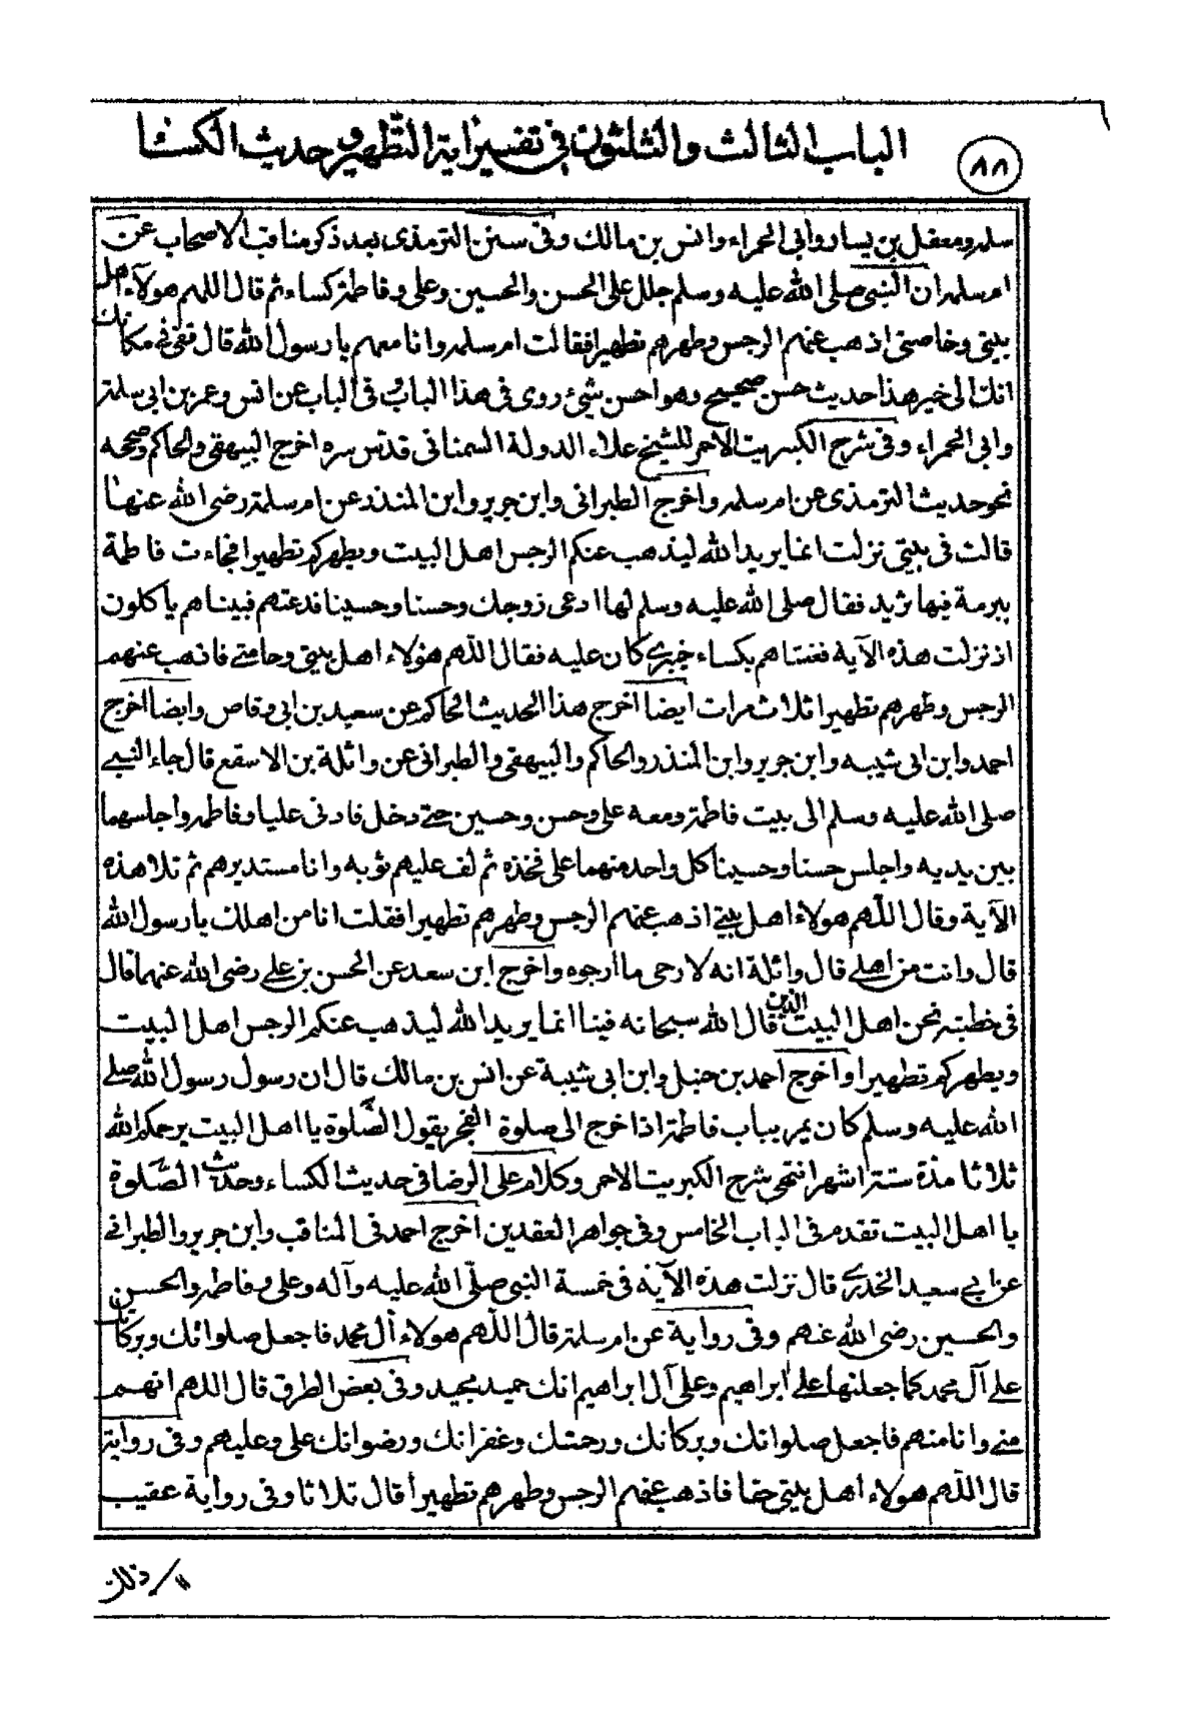 الباب الثالث والثلثون في تفسير اية التطهير وحديث الكساء
٨٨
سلمة ومعقل بن يسار وابى الحمراء وانس بن مالك وفى سنن الترمذى بعد ذكر مناقب الاصحاب عن
ام سلمة ان النبى صلى الله عليه وسلم جلل على الحسن والحسين وعلى وفاطمة كساء ثم قال اللهم هولاء اهل
بيتى وخاصتى اذهب عنهم الرجس وطهرهم تطهيرا فقالت ام سلمة وانا معهم يا رسول الله قال قفى فى مكانك
انك الى خير هذا حديث حسن صحيح وهو احسن شئ روى فى هذا الباب وفى الباب عن انس وعمر بن ابى سلمة
وابى الحمراء وفى شرح الكبريت الاحمر للشيخ علاء الدولة السمنانى قدس سره اخرج البيهقى والحاكم وصححه
نحو حديث الترمذى عن ام سلمه واخرج الطبرانى وابن جرير وابن المنذر عن ام سلمة رضى الله عنها
قالت فى بيتى نزلت انما يريد الله ليذهب عنكم الرجس اهل البيت ويطهركم تطهيرا فجاءت فاطمة
ببرمة فيها ثريد فقال صلى الله عليه وسلم لها ادعى زوجك وحسنا وحسينا فدعتهم فبينا هم ياكلون
اذ نزلت هذه الآية فغشاهم بكساء خيبرى كان عليه فقال اللهم هؤلاء اهل بيتى وحامتى فاذهب عنهم
الرجس وطهرهم تطهيرا ثلاث مرات ايضا اخرج هذا الحديث الحاكم عن سعيد بن ابى وقاص وايضا اخرج
احمد وابن ابى شيبه وابن جرير وابن المنذر والحاكم والبيهقى والطبرانى عن واثلة بن الاسقع قال جاء النبى
صلى الله عليه وسلم الى بيت فاطمة ومعه على وحسن وحسين حتى دخل فادنى عليا وفاطمه واجلسهما
بين يديه واجلس حسنا وحسينا كل واحد منهما على فخذه ثم لف عليهم ثوبه وانا مستديرهم ثم تلا هذه
الآية وقال اللهم هولاء اهل بيتى اذهب عنهم الرجس وطهرهم تطهيرا فقلت انا من اهلك يا رسول الله
قال وانت من اهلى قال واثلة انه لارجى ما ارجوه واخرج ابن سعد عن الحسن بن على رضى الله عنهما قال
فى خطبته نحن اهل البيت الذين قال الله سبحانه فينا انما يريد الله ليذهب عنكم الرجس اهل البيت
ويطهركم تطهيرا واخرج احمد بن حنبل وابن ابى شيبة عن انس بن مالك قال ان رسول رسول الله صلى
الله عليه وسلم كان يمر بباب فاطمة اذا خرج الى صلوة الفجر يقول الصلوة يا اهل البيت يرحمكم الله
ثلاثا مدة ستة اشهر انتهى شرح الكبريت الاحمر وكلام على الرضا فى حديث الكساء وحديث الصلوة
يا اهل البيت تقدم فى الباب الخامس وفى جواهر العقدين اخرج احمد فى المناقب وابن جرير والطبرانى
عن ابى سعيد الخدرى قال نزلت هذه الآية فى خمسة النبى صلى الله عليه وآله وعلى وفاطمه والحسن
والحسين رضى الله عنهم وفى رواية عن ام سلمة قال اللهم هولاء آل محمد فاجعل صلواتك وبركاتك
على آل محمد كما جعلتها على ابراهيم وعلى آل ابراهيم انك حميد مجيد وفى بعض الطرق قال اللهم انهم
منى وانا منهم فاجعل صلواتك وبركاتك ورحمتك وغفرانك ورضوانك على وعليهم وفى رواية
قال اللهم هولاء اهل بيتى حقا فاذهب عنهم الرجس وطهرهم تطهيرا قال ثلاثا وفى رواية عقيب
ذلك